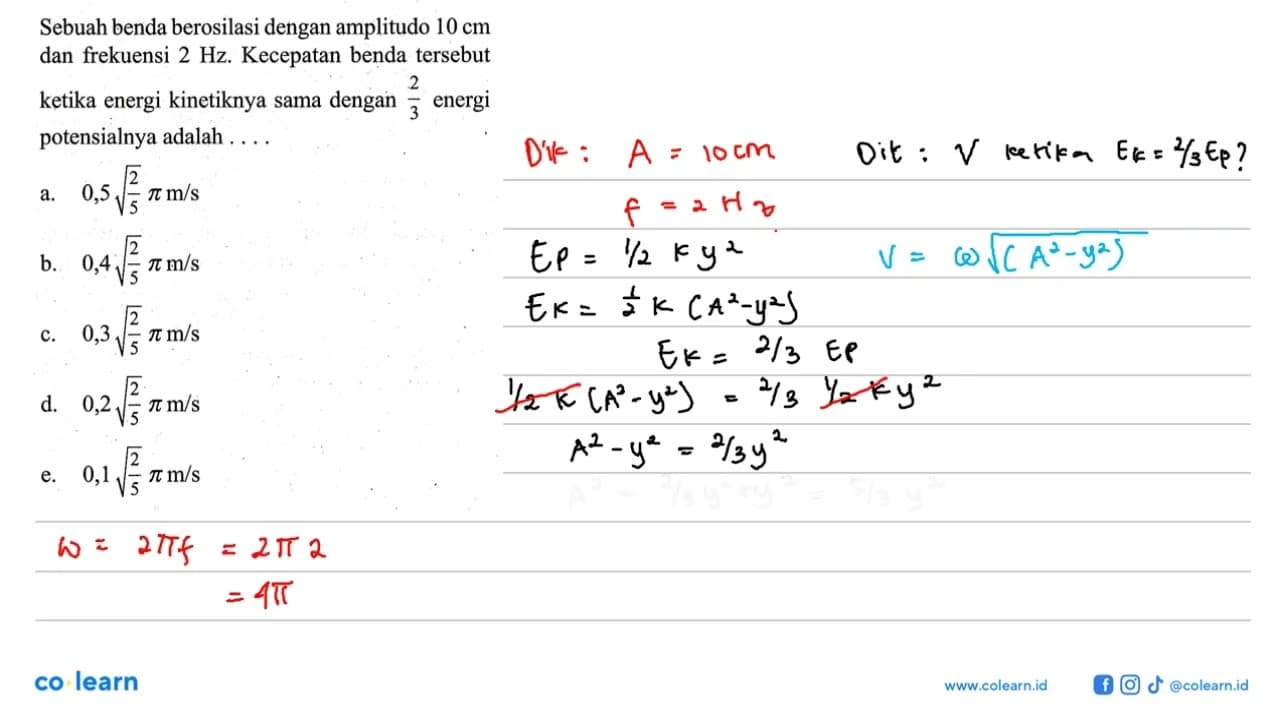 Sebuah benda berosilasi dengan amplitudo 10 cm
dan frekuensi 2 Hz. Kecepatan benda tersebut
ketika energi kinetiknya sama dengan 2/3 energi
potensialnya adalah . . . .
a. 0,5 √(2/5) π m/s
b. 0,4 √(2/5) π m/s
c. 0,3 √(2/5) π m/s
d. 0,2 √(2/5) π m/s
e. 0,1 √(2/5) π m/s
Dik : A = 10 cm
f = 2 Hz
Dit : V ketika Ek = 2/3 Ep?
Ep = 1/2 k y²
V = ω√(A²-y²)
Ek = 1/2 k (A²-y²)
Ek = 2/3 Ep
1/2 k (A²-y²) = 2/3 1/2 k y²
A² - y² = 2/3 y²
A² = 2/3 y² + y² = 5/3 y²
ω = 2πf = 2π 2
= 4π
co learn
www.colearn.id
@colearn.id